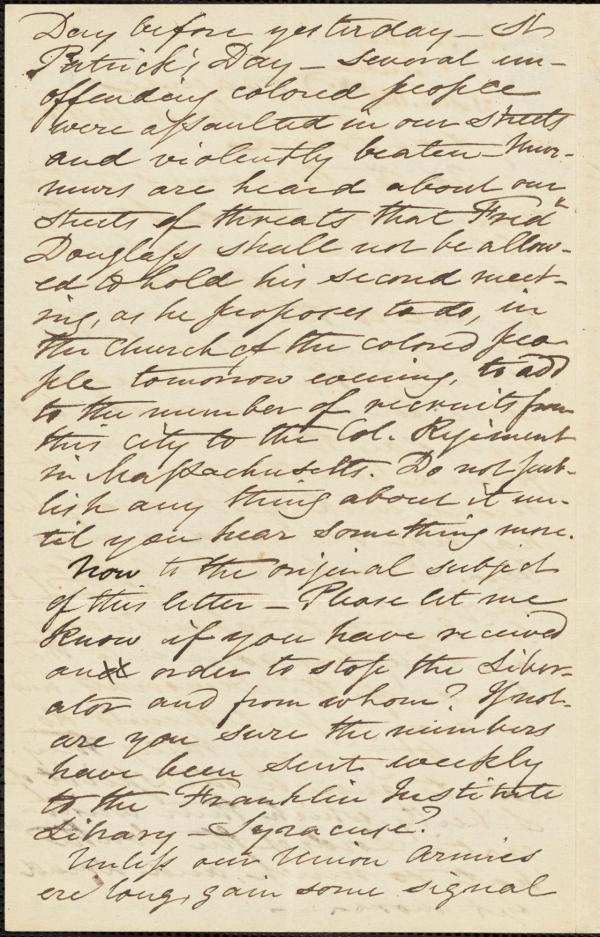 Day before yesterday – St
Patrick's Day – several un-
offending colored people
were assaulted in our streets
and violently beaten – Mur-
murs are heard about our
streets of threats that Fred"
Douglass shall not be allow-
ed to hold his second meet-
ing, as he proposes to do, in
the church of the colored peo-
ple tomorrow evening, to add
to the number of recruits from
this city to the Col. Regiment
in Massachusetts. Do not pub-
lish any thing about it un-
til you hear something more.
Now to the original subject
of this letter – Please let me
know if you have received
an order to stop the Liber-
ator and from whom? If not
are you sure the numbers
have been sent weekly
to the Franklin Institute
Library – Syracuse?
Unless our Union Armies
ere long, gain some signal